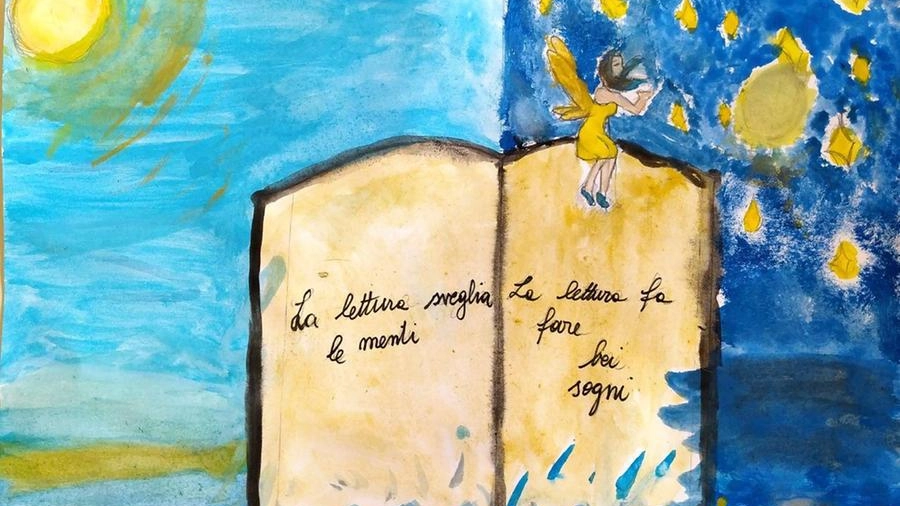 La lettura sveglia
le menti
La lettura fa
fare
bei
sogni